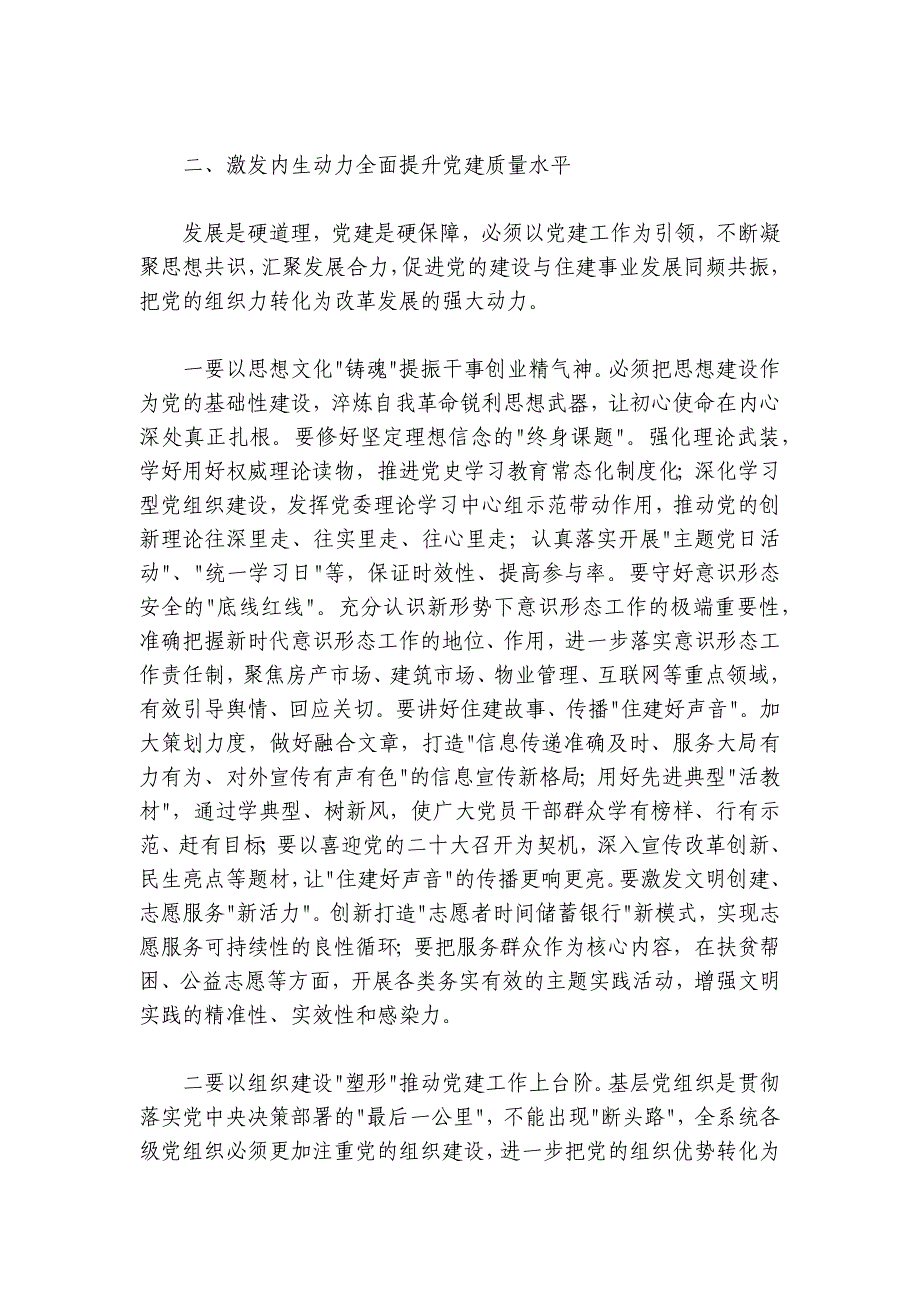 二、激发内生动力全面提升党建质量水平
发展是硬道理，党建是硬保障，必须以党建工作为引领，不断凝
聚思想共识，汇聚发展合力，促进党的建设与住建事业发展同频共振，
把党的组织力转化为改革发展的强大动力。
一要以思想文化"铸魂"提振干事创业精气神。必须把思想建设作
为党的基础性建设，淬炼自我革命锐利思想武器，让初心使命在内心
深处真正扎根。要修好坚定理想信念的"终身课题"。强化理论武装，
学好用好权威理论读物，推进党史学习教育常态化制度化；深化学习
型党组织建设，发挥党委理论学习中心组示范带动作用，推动党的创
新理论往深里走、往实里走、往心里走；认真落实开展"主题党日活
动"、"统一学习日"等，保证时效性、提高参与率。要守好意识形态
安全的"底线红线"。充分认识新形势下意识形态工作的极端重要性，
准确把握新时代意识形态工作的地位、作用，进一步落实意识形态工
作责任制，聚焦房产市场、建筑市场、物业管理、互联网等重点领域，
有效引导舆情、回应关切。要讲好住建故事、传播"住建好声音"。加
大策划力度，做好融合文章，打造"信息传递准确及时、服务大局有
力有为、对外宣传有声有色"的信息宣传新格局；用好先进典型"活教
材"，通过学典型、树新风，使广大党员干部群众学有榜样、行有示
范、赶有目标；要以喜迎党的二十大召开为契机，深入宣传改革创新、
民生亮点等题材，让"住建好声音"的传播更响更亮。要激发文明创建、
志愿服务"新活力"。创新打造"志愿者时间储蓄银行"新模式，实现志
愿服务可持续性的良性循环；要把服务群众作为核心内容，在扶贫帮
困、公益志愿等方面，开展各类务实有效的主题实践活动，增强文明
实践的精准性、实效性和感染力。
二要以组织建设"塑形"推动党建工作上台阶。基层党组织是贯彻
落实党中央决策部署的"最后一公里"，不能出现"断头路"，全系统各
级党组织必须更加注重党的组织建设，进一步把党的组织优势转化为